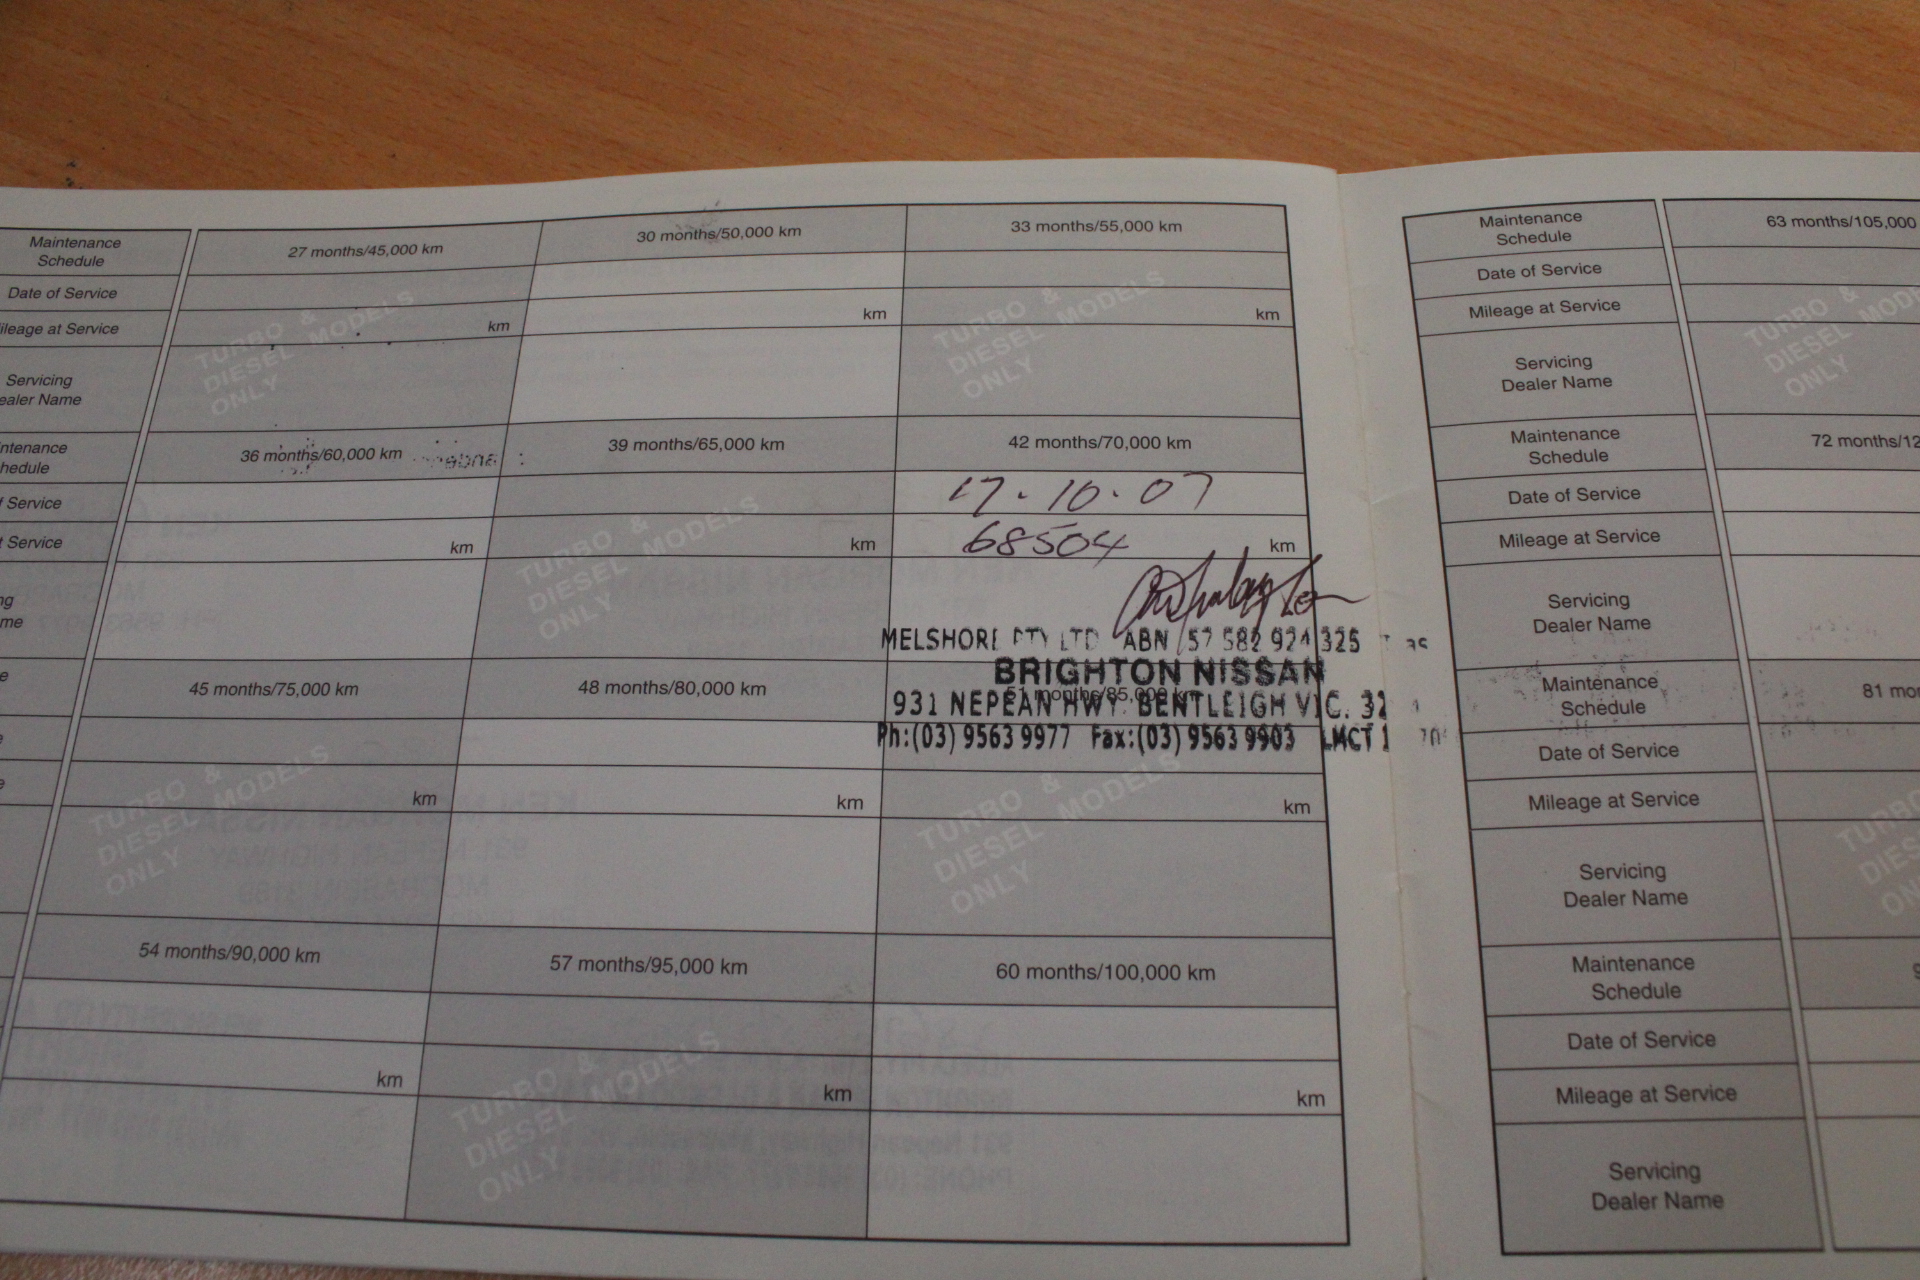 Maintenance Schedule 27 months/45,000 km 30 months/50,000 km 33 months/55,000 km
Date of Service
ileage at Service km km km
Servicing
ealer Name
TURBO & DIESEL MODELS ONLY
TURBO & DIESEL MODELS ONLY
ntenance
hedule 36 months/60,000 km 39 months/65,000 km 42 months/70,000 km
f Service 17.10.07
t Service km km 68504 km
ng
me
TURBO & DIESEL MODELS ONLY
MELSHORE PTY LTD ABN 57 582 924 325
BRIGHTON NISSAN
45 months/75,000 km 48 months/80,000 km 51 months/85,000 km
931 NEPEAN HWY. BENTLEIGH VIC. 32
Ph:(03) 9563 9977 Fax:(03) 9563 9903 LMCT 1
km km km
TURBO & DIESEL MODELS ONLY
TURBO & DIESEL MODELS ONLY
54 months/90,000 km 57 months/95,000 km 60 months/100,000 km
km km km
TURBO & DIESEL MODELS ONLY
Maintenance
Schedule 63 months/105,000
Date of Service
Mileage at Service
Servicing
Dealer Name
TURBO & DIESEL MOD ONLY
Maintenance
Schedule 72 months/12
Date of Service
Mileage at Service
Servicing
Dealer Name
Maintenance
Schedule 81 mon
Date of Service
Mileage at Service
Servicing
Dealer Name
TURBO
DIES
ON
Maintenance
Schedule 9
Date of Service
Mileage at Service
Servicing
Dealer Name